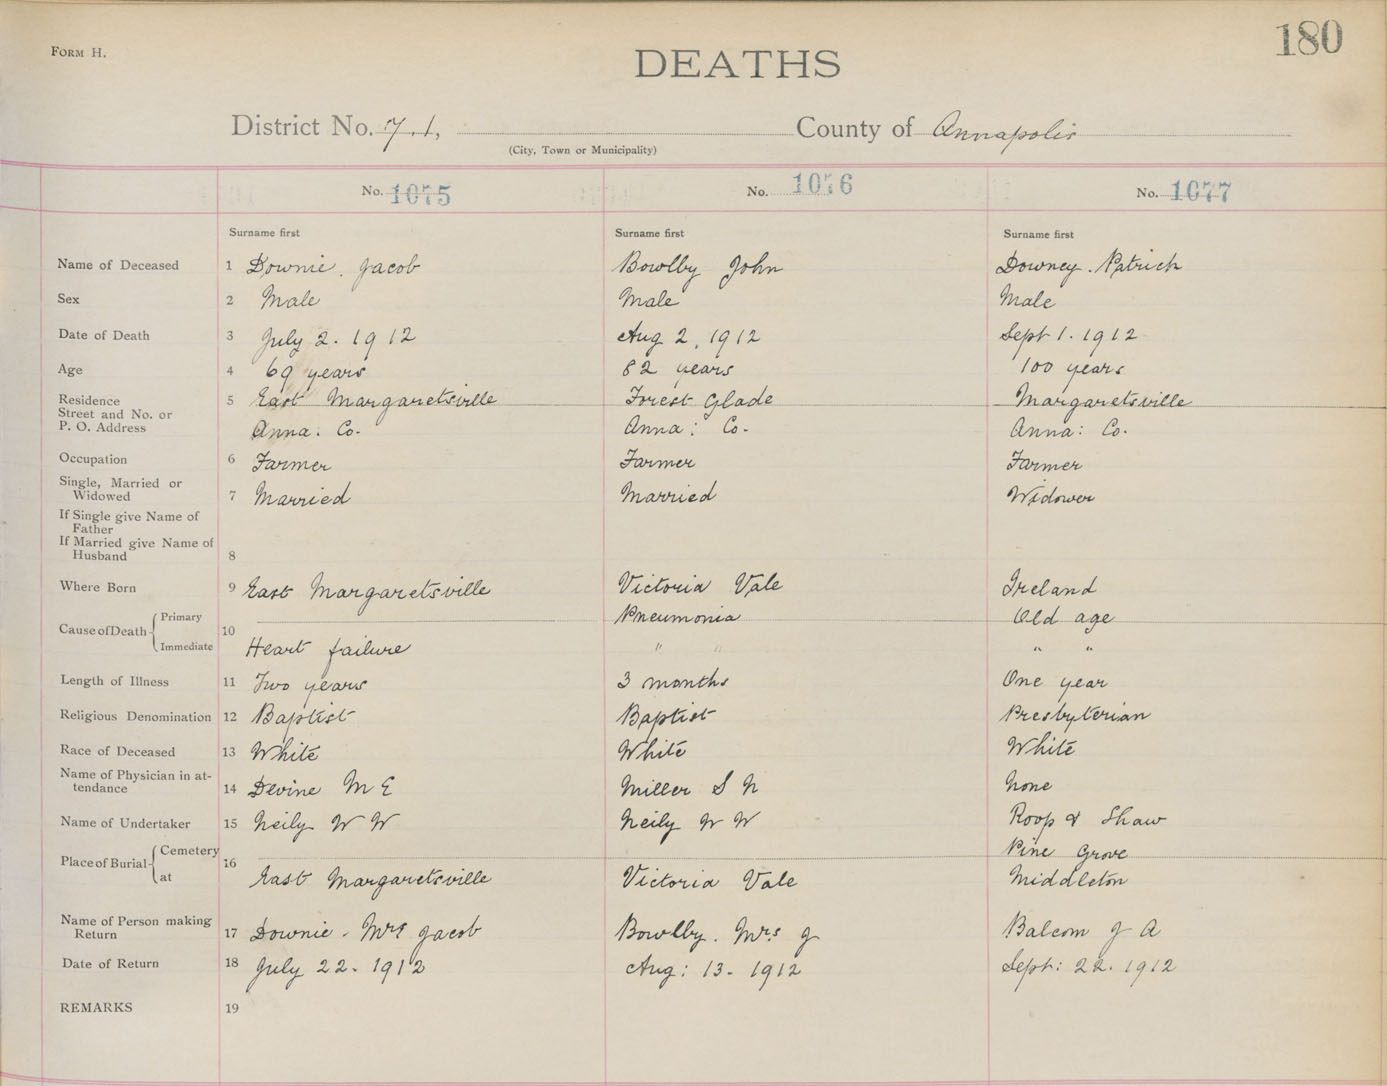 FORM H.
180
DEATHS
District No. 7.1, County of Annapolis
(City, Town or Municipality)
No. 1075 No. 1076 No. 1077
Surname first Surname first Surname first
Name of Deceased 1 Downie. Jacob Bowlby John Downey. Patrick
Sex 2 Male Male Male
Date of Death 3 July 2. 1912 Aug 2, 1912 Sept 1. 1912
Age 4 69 years 82 years 100 years
Residence 5 East Margaretsville Forest Glade Margaretsville
Street and No. or
P. O. Address Anna. Co. Anna: Co. Anna: Co.
Occupation 6 Farmer Farmer Farmer
Single, Married or
Widowed 7 Married Married Widower
If Single give Name of
Father
If Married give Name of
Husband 8
Where Born 9 East Margaretsville Victoria Vale Ireland
Cause of Death Primary 10 Pneumonia Old age
Immediate Heart failure " " " "
Length of Illness 11 Two years 3 months One year
Religious Denomination 12 Baptist Baptist Presbyterian
Race of Deceased 13 White White White
Name of Physician in at-
tendance 14 Devine M E Miller S N None
Name of Undertaker 15 Neily W W Neily W W Roop & Shaw
Place of Burial Cemetery 16 Pine Grove
at East Margaretsville Victoria Vale Middleton
Name of Person making
Return 17 Downie - Mrs Jacob Bowlby. Mrs J Balcom J A
Date of Return 18 July 22. 1912 Aug: 13. 1912 Sept: 22. 1912
REMARKS 19